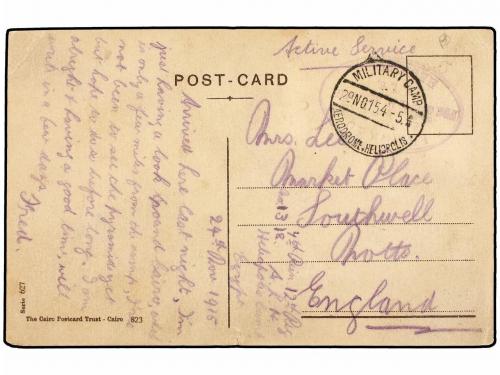 Active Service
POST-CARD
MILITARY CAMP
29 NO 15 4-5
AERODROME-HELIOPOLIS
Arrived here last night, I'm
just having a look round Cairo, which
is only a few miles from the camp. I've
not been to see the pyramids yet
but hope to do so before long. I'm
alright & having a good time, will
write in a few days
Fred.
24th Nov 1915
Mrs. Lee
Market Place
Southwell
Notts.
England
Heliopolis Camp
Egypt
Serie 627
The Cairo Postcard Trust - Cairo 823